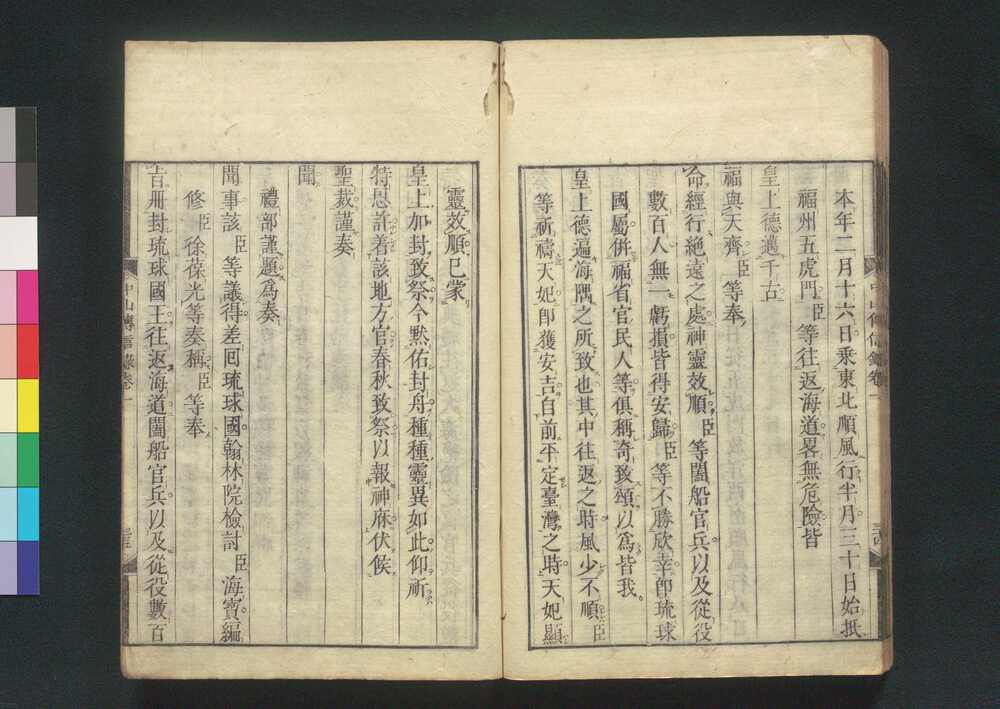 本年二月十六日乘東北順風行半月三十日始抵
福州五虎門臣等往返海道畧無危險皆
皇上德邁千古
福與天齊臣等奉
命經行絶遠之處神靈效順臣等闔船官兵以及從役
數百人無一虧損皆得安歸臣等不勝欣幸卽琉球
國屬併福省官民人等俱稱奇致頌以爲皆我
皇上德遍海隅之所致也其中往返之時風少不順臣
等祈禱天妃卽獲安吉自前平定臺灣之時天妃顯
靈效順已蒙
皇上加封致祭今黙佑封舟種種靈異如此仰祈
特恩許着該地方官春秋致祭以報神庥伏候
聖裁謹奏
聞
禮部謹題爲奏
聞事該臣等議得差囘琉球國翰林院檢討臣海寶編
修臣徐葆光等奏稱臣等奉
旨冊封琉球國王往返海道闔船官兵以及從役數百
中山傳信錄卷一